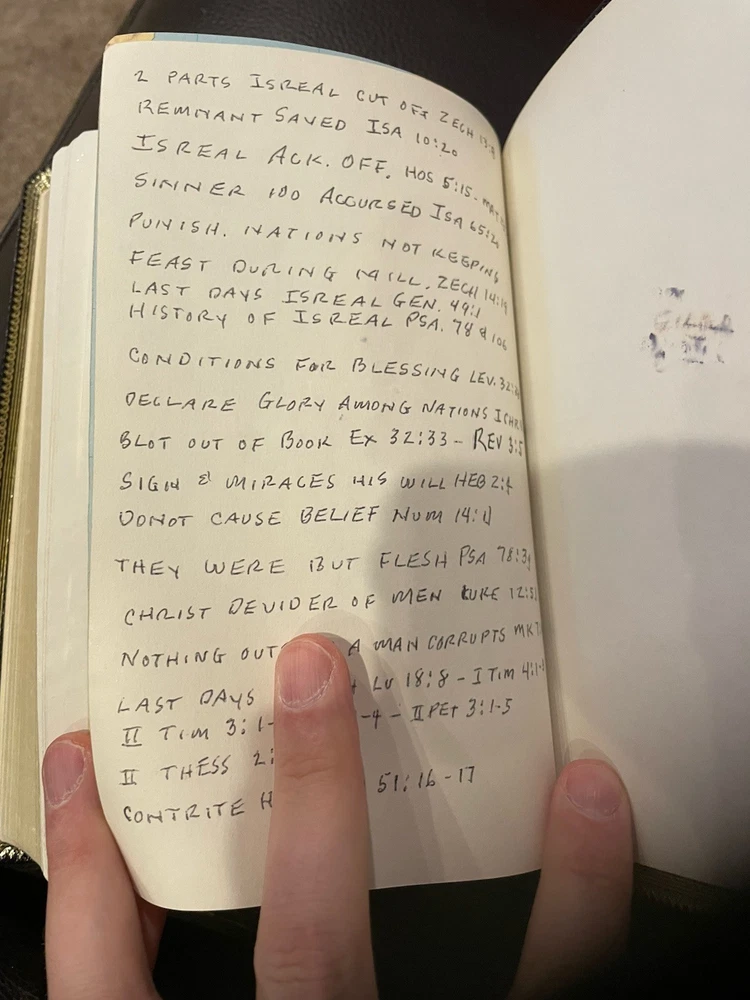 2 PARTS ISREAL CUT OFF ZECH
REMNANT SAVED ISA 10:20
ISREAL ACK. OFF. HOS 5:15 -
SINNER 100 ACCURSED ISA 65:20
PUNISH. NATIONS NOT KEEPING
FEAST DURING MILL. ZECH 14:19
LAST DAYS ISREAL GEN. 49:1
HISTORY OF ISREAL PSA. 78 & 106
CONDITIONS FOR BLESSING LEV.
DECLARE GLORY AMONG NATIONS
BLOT OUT OF BOOK EX 32:33 - REV 3:5
SIGN & MIRACES HIS WILL HEB 2:4
DO NOT CAUSE BELIEF NUM 14:11
THEY WERE BUT FLESH PSA
CHRIST DEVIDER OF MEN LUKE
NOTHING A MAN CORRUPTS MK
LAST DAYS LU 18:8 - I TIM
II TIM 3:1- -4 - II PET 3:1-5
II THESS 2:
CONTRITE 51:16-17